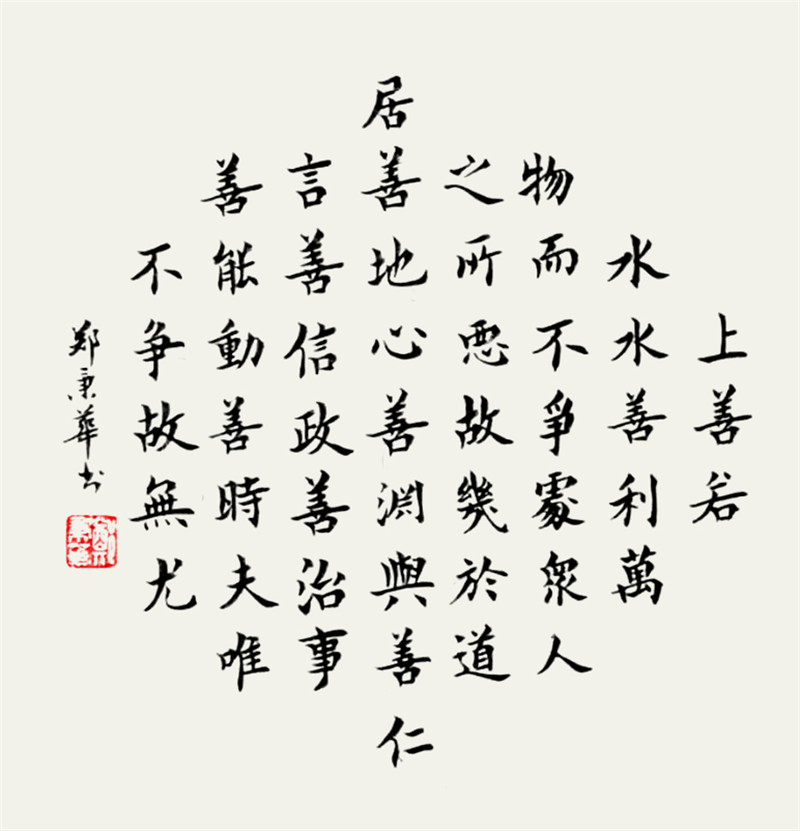 上善若
水水善利萬
物而不爭處衆人
之所惡故幾於道
居善地心善淵與善仁
言善信政善治事
善能動善時夫唯
不争故無尤
郑秉華书